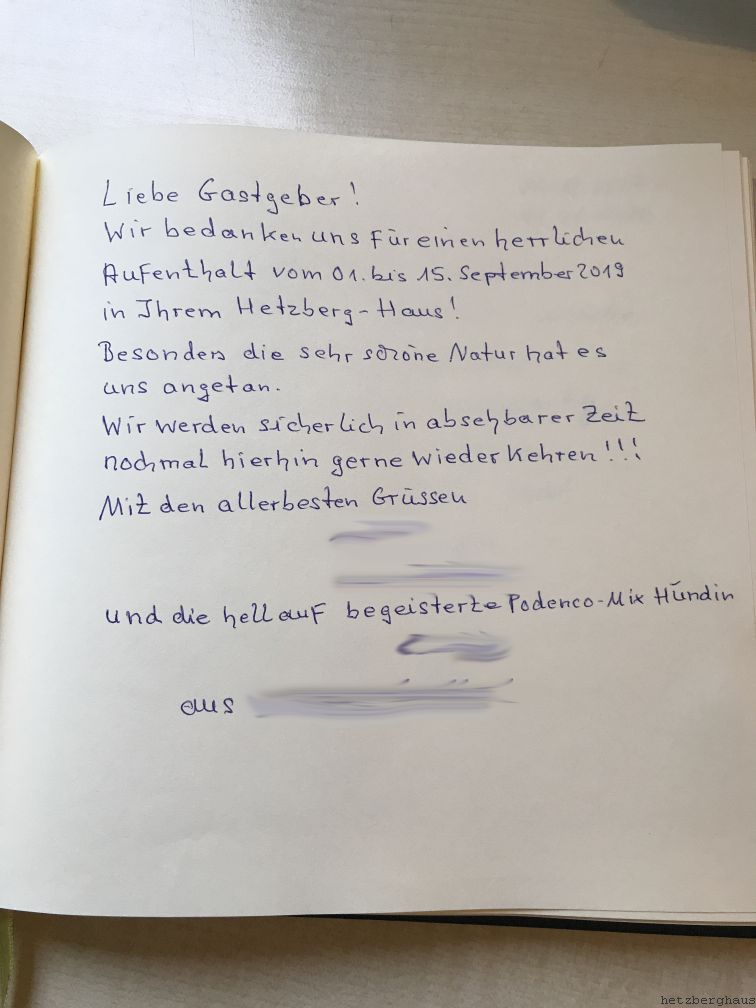 Liebe Gastgeber!
Wir bedanken uns für einen herrlichen
Aufenthalt vom 01. bis 15. September 2019
in Ihrem Hetzberg-Haus!
Besonders die sehr schöne Natur hat es
uns angetan.
Wir werden sicherlich in absehbarer Zeit
nochmal hierhin gerne wiederkehren!!!
Mit den allerbesten Grüssen
und die hellauf begeisterte Podenco-Mix Hündin
aus
hetzberghaus